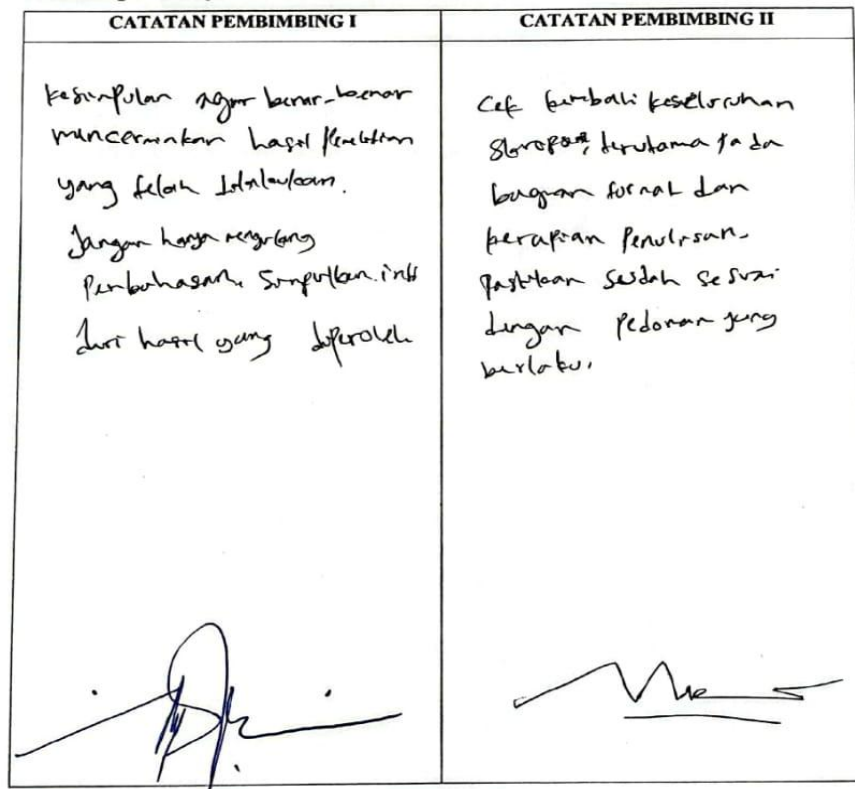 CATATAN PEMBIMBING I
kesimpulan agar benar-benar
mencerminkan hasil penelitian
yang telah dilakukan.
Jangan hanya mengulang
Pembahasan. Simpulkan inti
dari hasil yang diperoleh
CATATAN PEMBIMBING II
Cek kembali keseluruhan
terutama pada
bagian format dan
kerapian Penulisan.
Pastikan sudah sesuai
dengan Pedoman yang
berlaku.